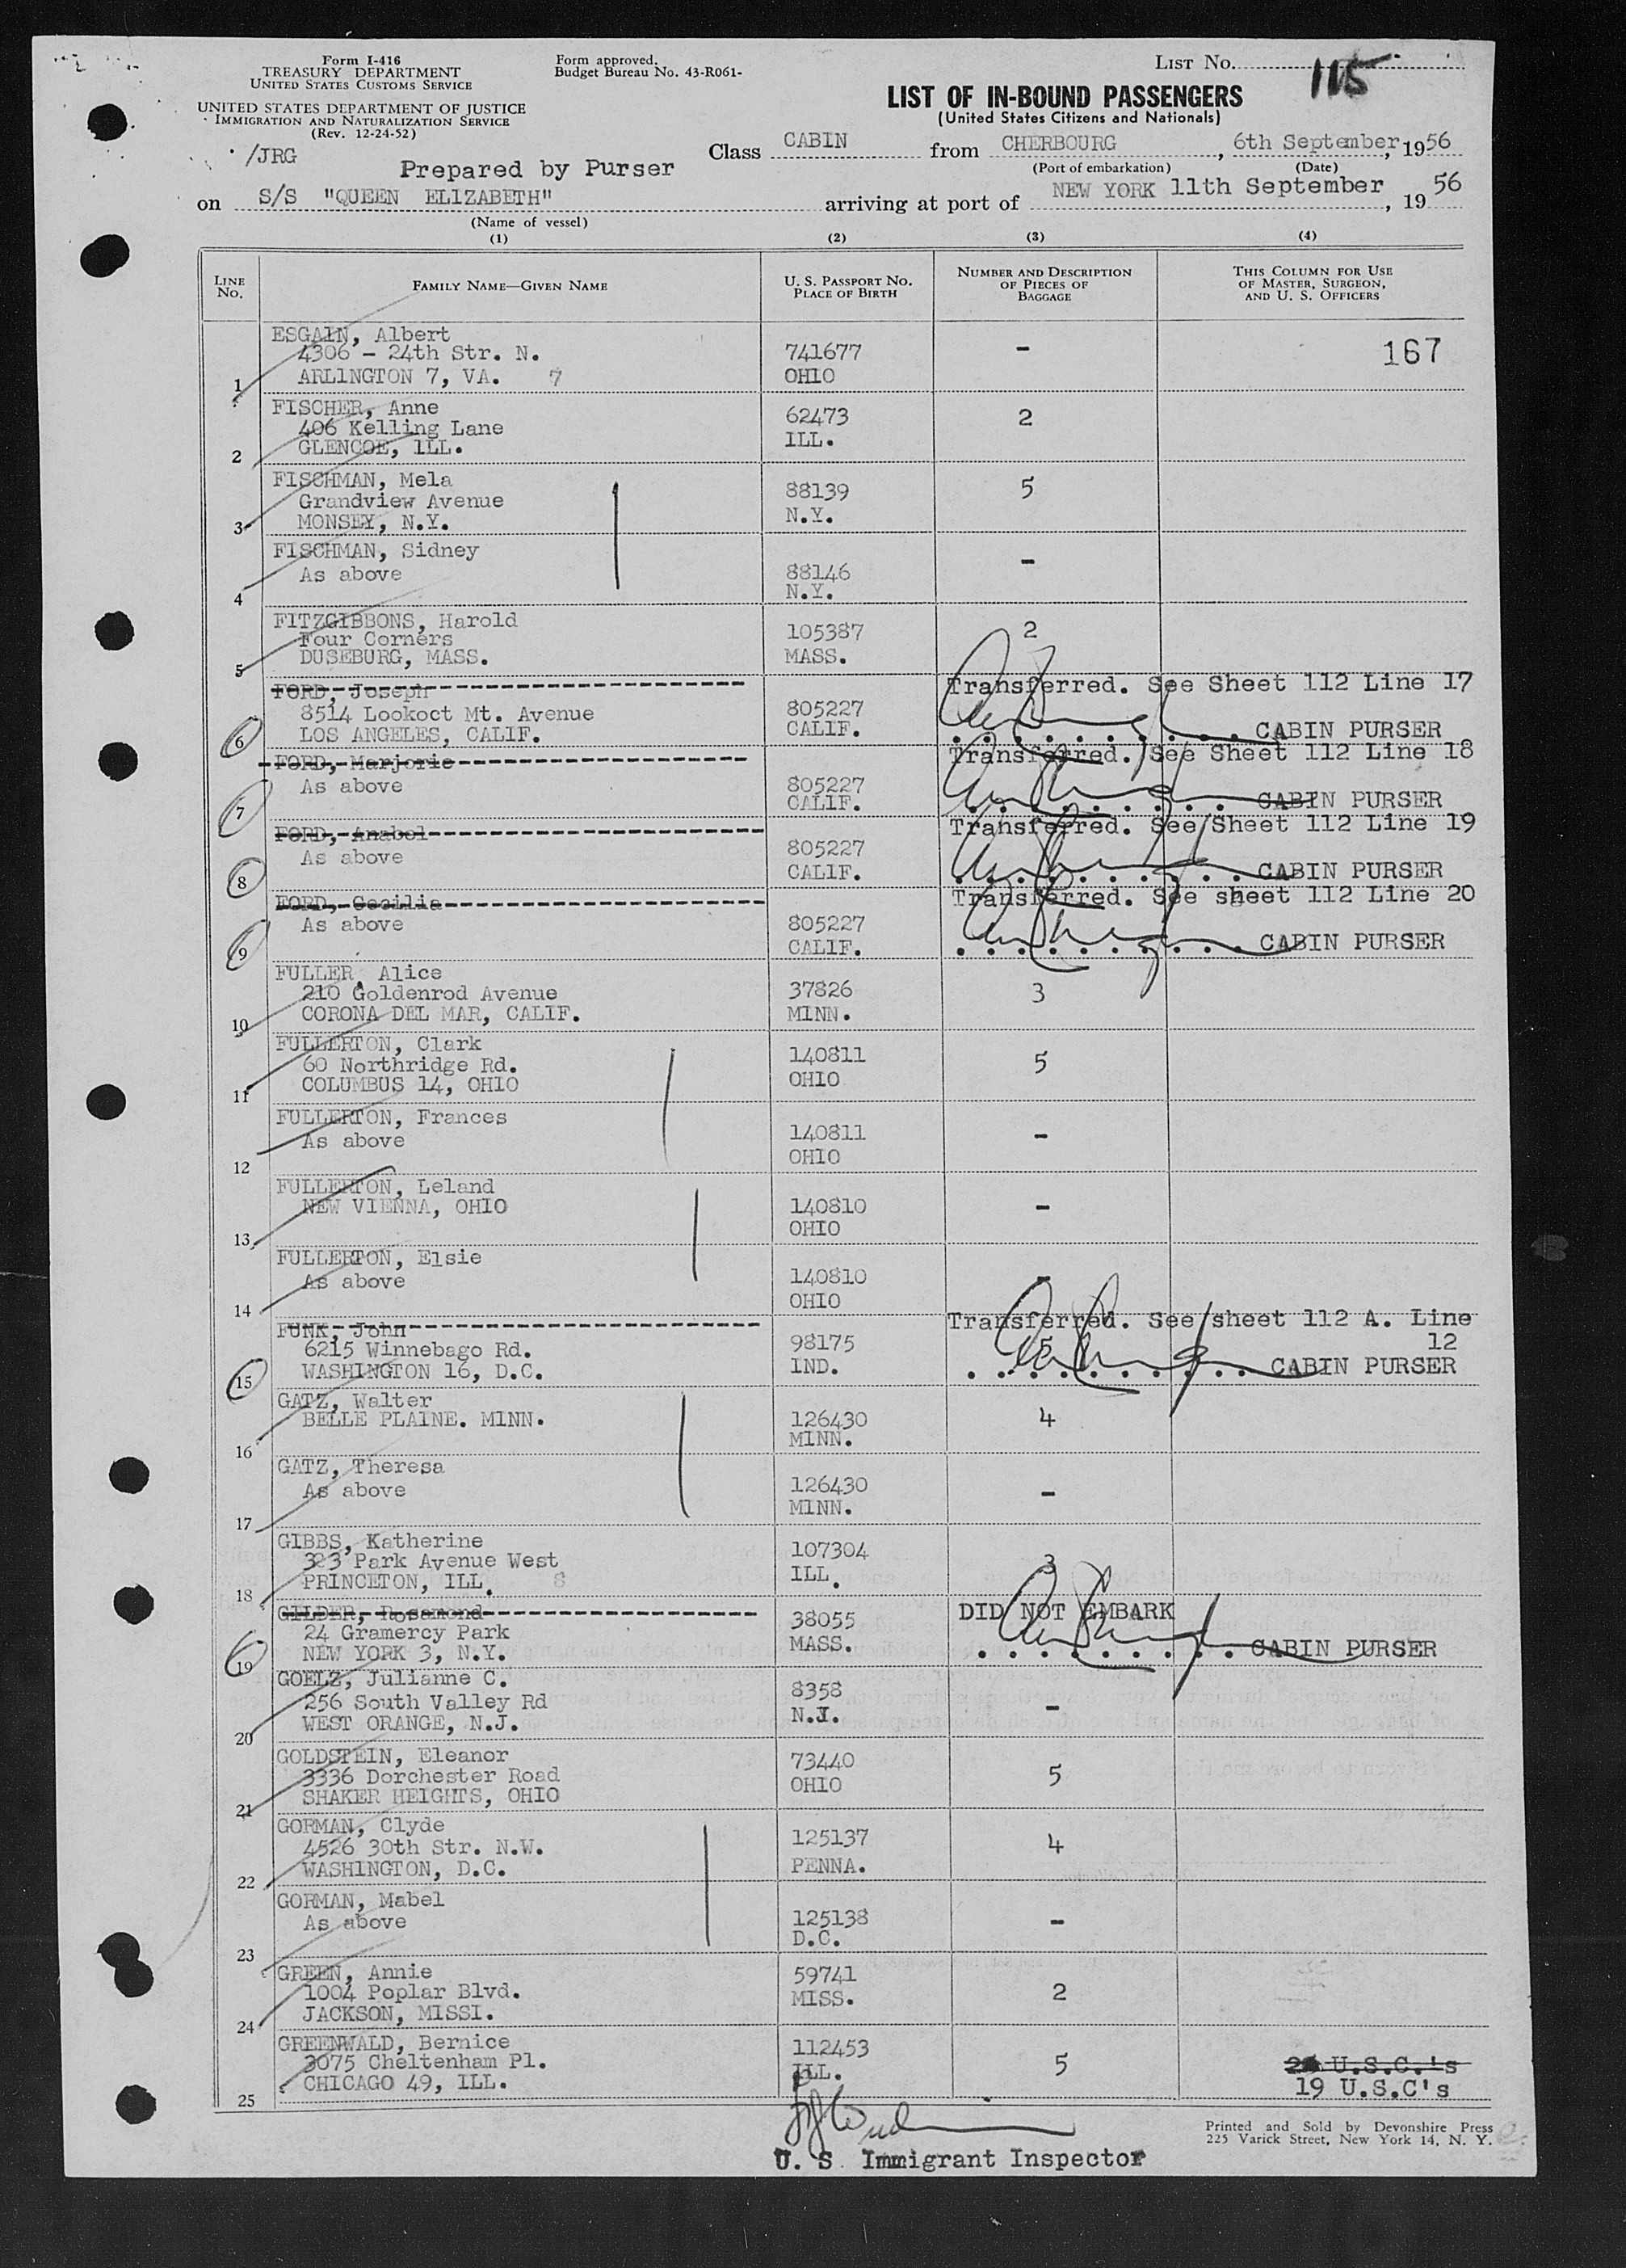 Form I-416
TREASURY DEPARTMENT
UNITED STATES CUSTOMS SERVICE
UNITED STATES DEPARTMENT OF JUSTICE
IMMIGRATION AND NATURALIZATION SERVICE
(Rev. 12-24-52)
Form approved.
Budget Bureau No. 43-R061-
LIST NO. 115
LIST OF IN-BOUND PASSENGERS
(United States Citizens and Nationals)
/JRG
Prepared by Purser
Class CABIN from CHERBOURG, 6th September, 1956
(Port of embarkation) (Date)
on S/S "QUEEN ELIZABETH" arriving at port of NEW YORK 11th September, 1956
(Name of vessel)
(1) (2) (3) (4)
LINE NO. FAMILY NAME—GIVEN NAME U. S. PASSPORT NO. PLACE OF BIRTH NUMBER AND DESCRIPTION OF PIECES OF BAGGAGE THIS COLUMN FOR USE OF MASTER, SURGEON, AND U. S. OFFICERS
ESGAIN, Albert
4306 - 24th Str. N. 741677 - 167
1 ARLINGTON 7, VA. 7 OHIO
FISCHER, Anne
406 Kelling Lane 62473 2
2 GLENCOE, ILL. ILL.
FISCHMAN, Mela
Grandview Avenue 88139 5
3 MONSEY, N.Y. N.Y.
FISCHMAN, Sidney
As above 88146 -
4 N.Y.
FITZGIBBONS, Harold
Four Corners 105387 2
5 DUSEBURG, MASS. MASS.
FORD, Joseph Transferred. See Sheet 112 Line 17
8514 Lookoct Mt. Avenue 805227
6 LOS ANGELES, CALIF. CALIF. CABIN PURSER
FORD, Marjorie Transferred. See Sheet 112 Line 18
As above 805227
7 CALIF. CABIN PURSER
FORD, Anabel Transferred. See Sheet 112 Line 19
As above 805227
8 CALIF. CABIN PURSER
FORD, Cecilia Transferred. See sheet 112 Line 20
As above 805227
9 CALIF. CABIN PURSER
FULLER, Alice
210 Goldenrod Avenue 37826 3
10 CORONA DEL MAR, CALIF. MINN.
FULLERTON, Clark
60 Northridge Rd. 140811 5
11 COLUMBUS 14, OHIO OHIO
FULLERTON, Frances
As above 140811 -
12 OHIO
FULLERTON, Leland
NEW VIENNA, OHIO 140810 -
13 OHIO
FULLERTON, Elsie
As above 140810 -
14 OHIO
FUNK, John Transferred. See sheet 112 A. Line 12
6215 Winnebago Rd. 98175 5
15 WASHINGTON 16, D.C. IND. CABIN PURSER
GATZ, Walter
BELLE PLAINE. MINN. 126430 4
16 MINN.
GATZ, Theresa
As above 126430 -
17 MINN.
GIBBS, Katherine
323 Park Avenue West 107304 3
18 PRINCETON, ILL. 8 ILL.
GILDER, Rosamond DID NOT EMBARK
24 Gramercy Park 38055
19 NEW YORK 3, N.Y. MASS. CABIN PURSER
GOELZ, Julianne C.
256 South Valley Rd 8358 -
20 WEST ORANGE, N.J. N.J.
GOLDSTEIN, Eleanor
3336 Dorchester Road 73440 5
21 SHAKER HEIGHTS, OHIO OHIO
GORMAN, Clyde
4526 30th Str. N.W. 125137 4
22 WASHINGTON, D.C. PENNA.
GORMAN, Mabel
As above 125138 -
23 D.C.
GREEN, Annie
1004 Poplar Blvd. 59741 2
24 JACKSON, MISSI. MISS.
GREENWALD, Bernice
3075 Cheltenham Pl. 112453 5 U.S.C.'s
25 CHICAGO 49, ILL. ILL. 19 U.S.C's
U. S. Immigrant Inspector
Printed and Sold by Devonshire Press
225 Varick Street, New York 14, N. Y.